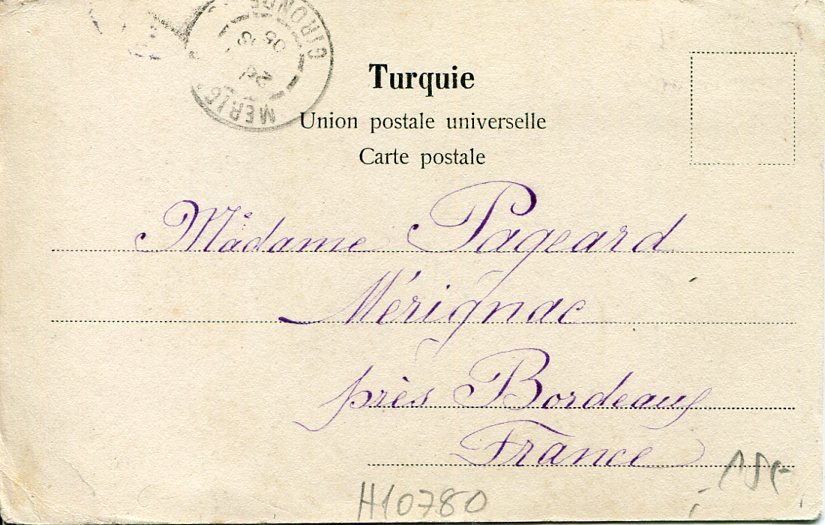 GIRONDE
05
Turquie
Union postale universelle
Carte postale
Madame Pageard
Mérignac
près Bordeaux
France
H10780